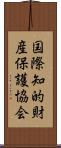 国際知的財
産保護協会